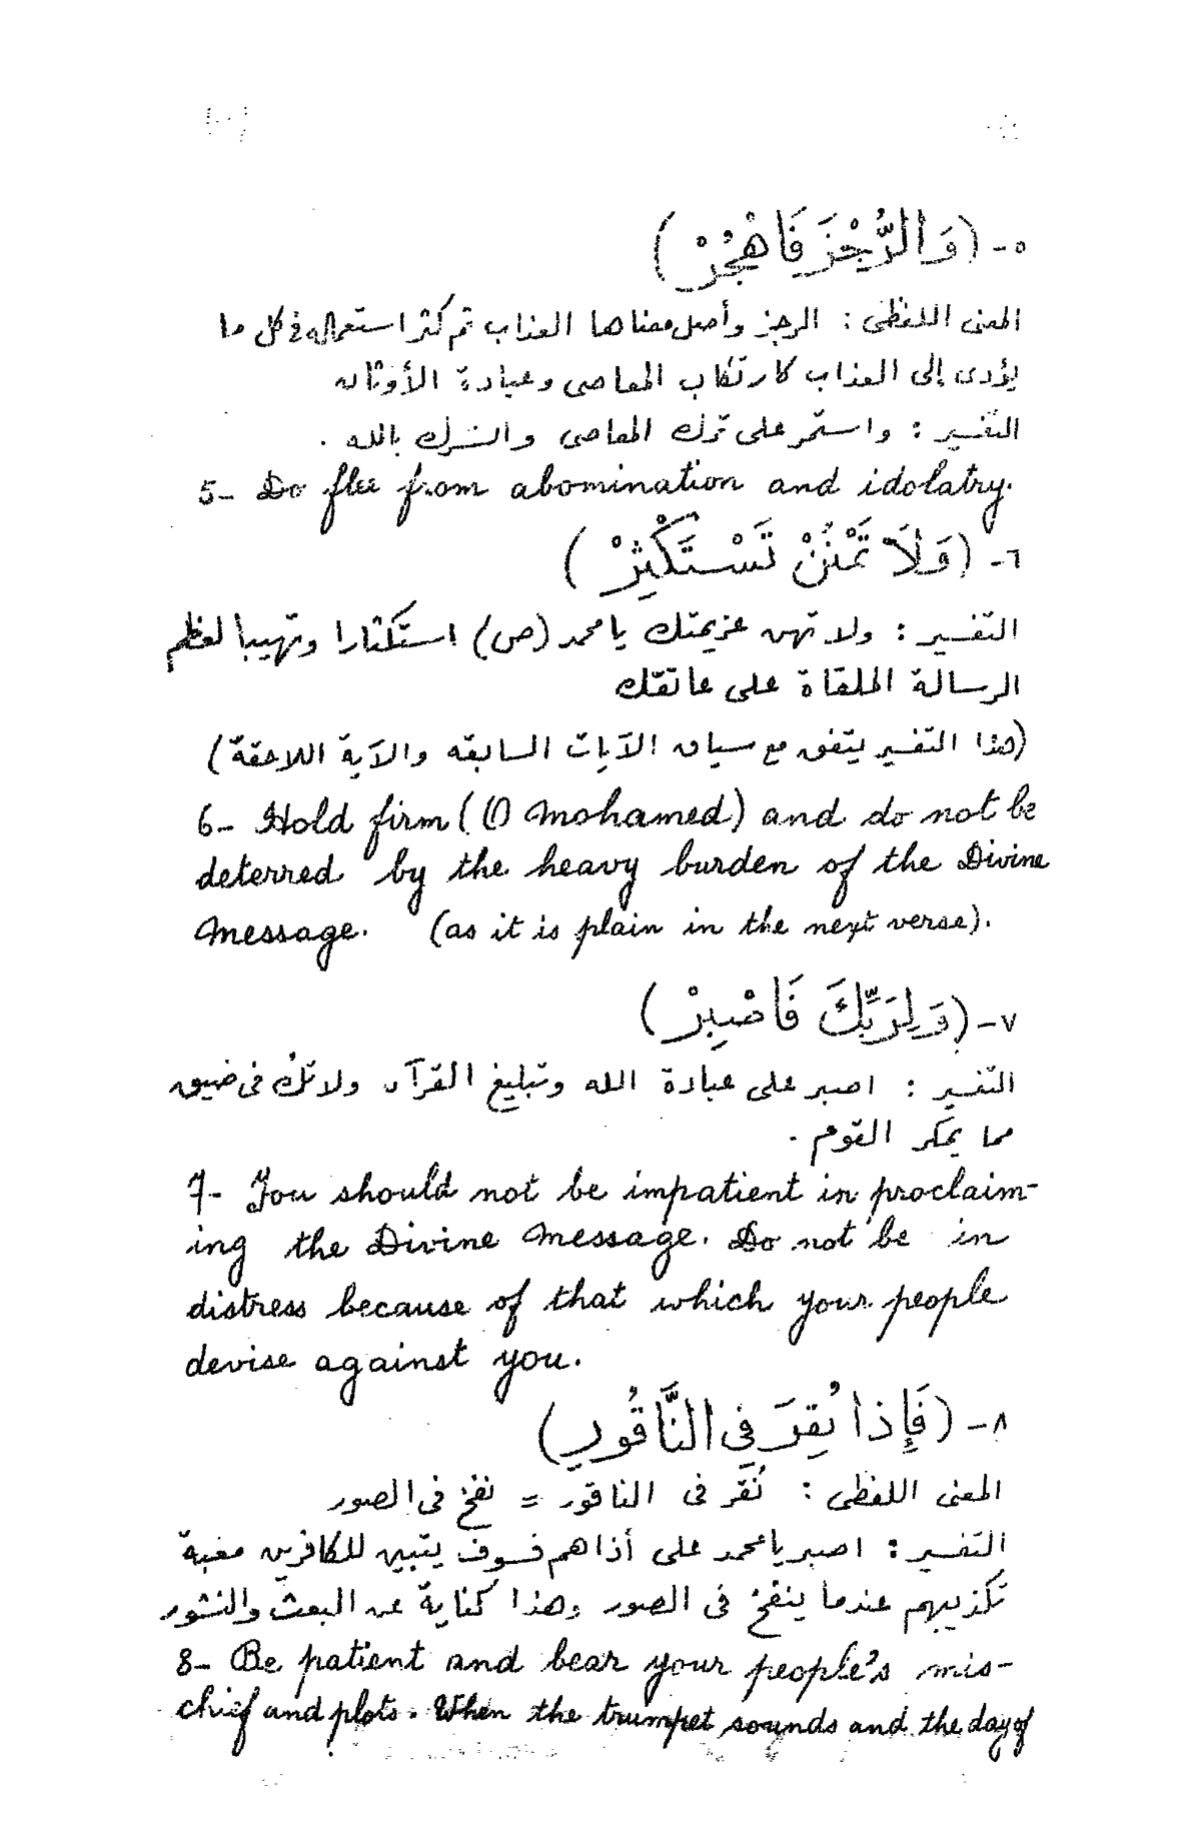 ٥- (وَالرُّجْزَ فَاهْجُرْ)
المعنى اللفظى : الرجز وأصل معناها العذاب ثم كثر استعماله فى كل ما
يؤدى إلى العذاب كارتكاب المعاصى وعبادة الأوثان
التفسير : واستمر على ترك المعاصى والشرك بالله .
5- Do flee from abomination and idolatry.
٦- (وَلَا تَمْنُنْ تَسْتَكْثِرْ)
التفسير : ولا تهن عزيمتك يا محمد (ص) استكثارا وتهيبا لعظم
الرسالة الملقاة على عاتقك
(هذا التفسير يتفق مع سياق الآيات السابقه والآية اللاحقة)
6- Hold firm (O Mohamed) and do not be
deterred by the heavy burden of the Divine
Message. (as it is plain in the next verse).
٧- (وَلِرَبِّكَ فَاصْبِرْ)
التفسير : اصبر على عبادة الله وتبليغ القرآن ولا تك فى ضيق
مما يمكر القوم .
7- You should not be impatient in proclaim-
ing the Divine Message. Do not be in
distress because of that which your people
devise against you.
٨- (فَإِذَا نُقِرَ فِي النَّاقُورِ)
المعنى اللفظى : نُقر فى الناقور = نفخ فى الصور
التفسير : اصبر يا محمد على أذاهم فسوف يتبين للكافرين مغبة
تكذيبهم عندما ينفخ فى الصور وهذا كناية عن البعث والنشور
8- Be patient and bear your people's mis-
chief and plots. When the trumpet sounds and the day of